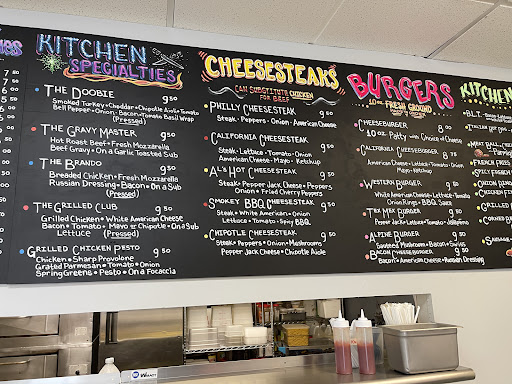 KITCHEN
SPECIALTIES
THE DOOBIE 9.50
Smoked Turkey • Cheddar • Chipotle Aioli • Tomato
Bell Pepper • Onion • Bacon • Tomato Basil Wrap
(Pressed)
THE GRAVY MASTER 9.50
Hot Roast Beef • Fresh Mozzarella
Beef Gravy • On a Garlic Toasted Sub
THE BRANDO 9.50
Breaded Chicken • Fresh Mozzarella
Russian Dressing • Bacon • On a Sub
(Pressed)
THE GRILLED CLUB 9.50
Grilled Chicken • White American Cheese
Bacon • Tomato • Mayo or Chipotle • On a Sub
Lettuce (Pressed)
GRILLED CHICKEN PESTO 9.50
Chicken • Sharp Provolone
Grated Parmesan • Tomato • Onion
Spring Greens • Pesto • On a Focaccia
CHEESESTEAKS
CAN SUBSTITUTE CHICKEN
FOR BEEF
PHILLY CHEESESTEAK 9.50
Steak • Peppers • Onion • American Cheese
CALIFORNIA CHEESESTEAK 9.50
Steak • Lettuce • Tomato • Onion
American Cheese • Mayo • Ketchup
AL'S HOT CHEESESTEAK 9.50
Steak • Pepper Jack Cheese • Peppers
Onions • Fried Cherry Peppers
SMOKEY BBQ CHEESESTEAK 9.50
Steak • White American • Onion
Lettuce • Tomato • Spicy BBQ
CHIPOTLE CHEESESTEAK 9.50
Steak • Peppers • Onion • Mushrooms
Pepper Jack Cheese • Chipotle Aiole
BURGERS
10 oz. FRESH GROUND
CHEESEBURGER 8
10 oz. Patty with Choice of Cheese
CALIFORNIA CHEESEBURGER 8.75
American Cheese • Lettuce • Tomato • Onion
Mayo • Ketchup
WESTERN BURGER 9
White American Cheese • Lettuce • Tomato
Onion Rings • BBQ Sauce
TEX MEX BURGER 9
Pepper Jack • Lettuce • Tomato • Jalapeno
ALPINE BURGER 9
Sauteed Mushroom • Bacon • Swiss
BACON CHEESEBURGER 9
Bacon • American Cheese • Russian Dressing
KITCHEN
B.L.T.
ITALIAN HOT DOG
MEAT BALL
FRENCH FRIES